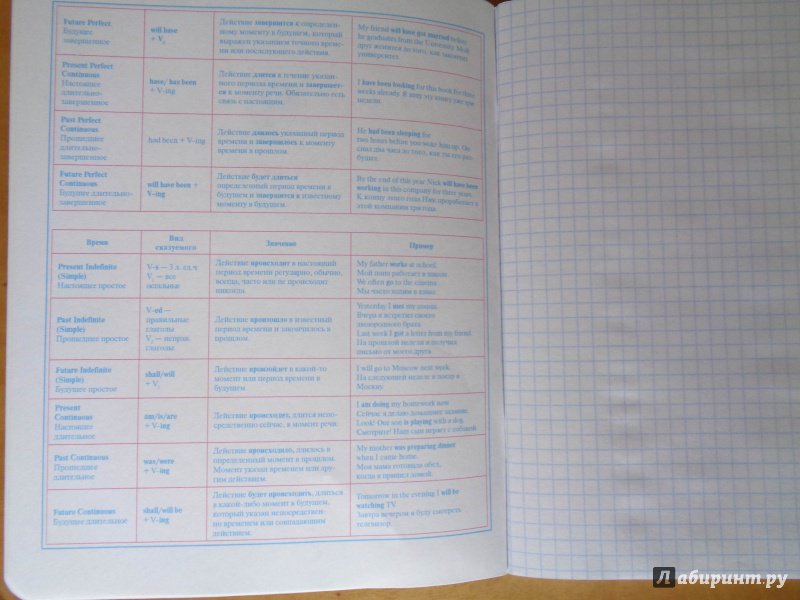 Future Perfect
Будущее
завершенное
will have
+ V
Действие завершится к определен-
ному моменту в будущем, который
выражен указанием точного време-
ни или последующего действия.
My friend will have got married before
he graduates from the University. Мой
друг женится до того, как закончит
университет.
Present Perfect
Continuous
Настоящее
длительно-
завершенное
have/ has been
+ V-ing
Действие длится в течение указан-
ного периода времени и завершает-
ся к моменту речи. Обязательно есть
связь с настоящим.
I have been looking for this book for three
weeks already. Я ищу эту книгу уже три
недели.
Past Perfect
Continuous
Прошедшее
длительно-
завершенное
had been + V-ing
Действие длилось указанный период
времени и завершилось к моменту
времени в прошлом.
He had been sleeping for
two hours before you woke him up. Он
спал два часа до того, как ты его раз-
будил.
Future Perfect
Continuous
Будущее длительно-
завершенное
will have been +
V-ing
Действие будет длиться
определенный период времени в
будущем и завершится к известному
моменту в будущем.
By the end of this year Nick will have been
working in this company for three years.
К концу этого года Ник проработает в
этой компании три года.
Время
Вид
сказуемого
Значение
Пример
Present Indefinite
(Simple)
Настоящее простое
V-s — 3 л. ед.ч
V — все
остальные
Действие происходит в настоящий
период времени регулярно, обычно,
всегда, часто или не происходит
никогда.
My father works at school.
Мой папа работает в школе.
We often go to the cinema.
Мы часто ходим в кино.
Past Indefinite
(Simple)
Прошедшее простое
V-ed —
правильные
глаголы
V — неправ.
глаголы
Действие произошло в известный
период времени и закончилось в
прошлом.
Yesterday I met my cousin.
Вчера я встретил своего
двоюродного брата.
Last week I got a letter from my friend.
На прошлой неделе я получил
письмо от моего друга.
Future Indefinite
(Simple)
Будущее простое
shall/will
+ V
Действие произойдет в какой-то
момент или период времени в
будущем.
I will go to Moscow next week.
На следующей неделе я поеду в
Москву.
Present
Continuous
Настоящее
длительное
am/is/are
+ V-ing
Действие происходит, длится непо-
средственно сейчас, в момент речи.
I am doing my homework now.
Сейчас я делаю домашнее задание.
Look! Our son is playing with a dog.
Смотрите! Наш сын играет с собакой.
Past Continuous
Прошедшее
длительное
was/were
+ V-ing
Действие происходило, длилось в
определенный момент в прошлом.
Момент указан временем или дру-
гим действием.
My mother was preparing dinner
when I came home.
Моя мама готовила обед,
когда я пришел домой.
Future Continuous
Будущее длительное
shall/will be
+ V-ing
Действие будет происходить, длиться
в какой-либо момент в будущем,
который указан непосредствен-
но временем или совпадающим
действием.
Tomorrow in the evening I will be
watching TV.
Завтра вечером я буду смотреть
телевизор.
Лабиринт.ру